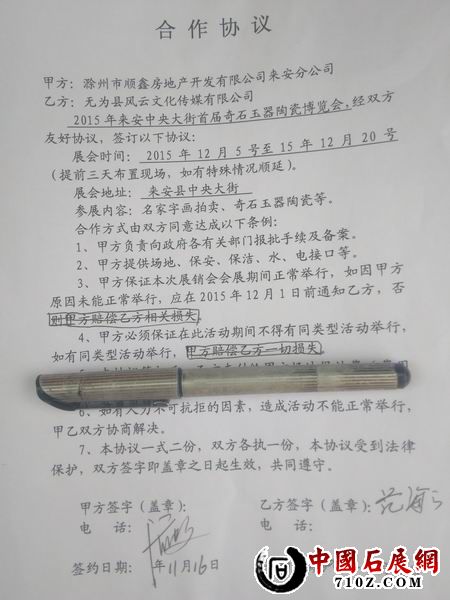 合作协议
甲方：滁州市顺鑫房地产开发有限公司来安分公司
乙方：无为县风云文化传媒有限公司
2015年来安中央大街首届奇石玉器陶瓷博览会，经双方
友好协议，签订以下协议：
展会时间：2015年12月5号至15年12月20号
（提前三天布置现场，如有特殊情况顺延）。
展会地址：来安县中央大街
参展内容：名家字画拍卖、奇石玉器陶瓷等。
合作方式由双方同意达成以下条例：
1、甲方负责向政府各有关部门报批手续及备案。
2、甲方提供场地、保安、保洁、水、电接口等。
3、甲方保证本次展销会会展期间正常举行，如因甲方
原因未能正常举行，应在2015年12月1日前通知乙方，否
则甲方赔偿乙方相关损失。
4、甲方必须保证在此活动期间不得有同类型活动举行，
如有同类型活动举行，甲方赔偿乙方一切损失。
6、如有人力不可抗拒的因素，造成活动不能正常举行，
甲乙双方协商解决。
7、本协议一式二份，双方各执一份，本协议受到法律
保护，双方签字即盖章之日起生效，共同遵守。
甲方签字（盖章）： 乙方签字（盖章）：
电 话： 电 话：
签约日期： 年11月16日
中國石展網
7102.COM